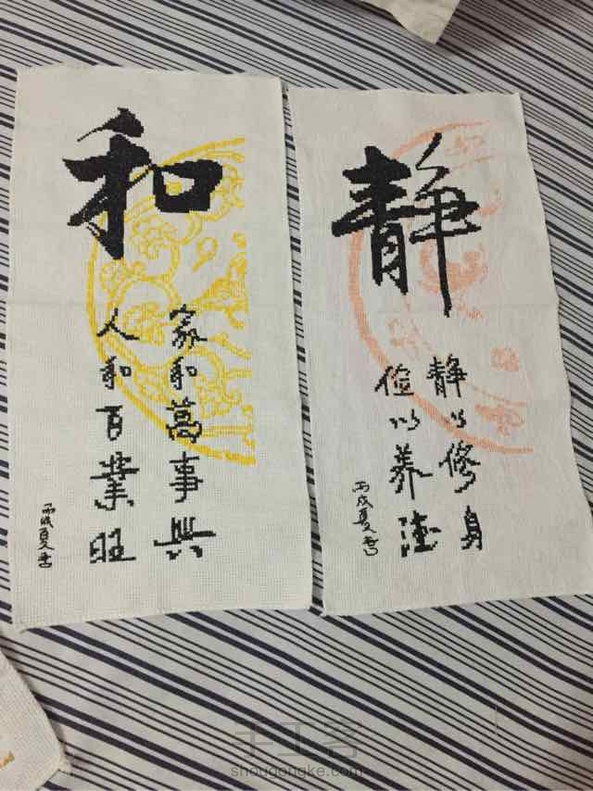 和
家和萬事興
人和百業旺
丙戌夏書
静
静以修身
俭以养德
丙戌夏書
手工客
shougongke.com